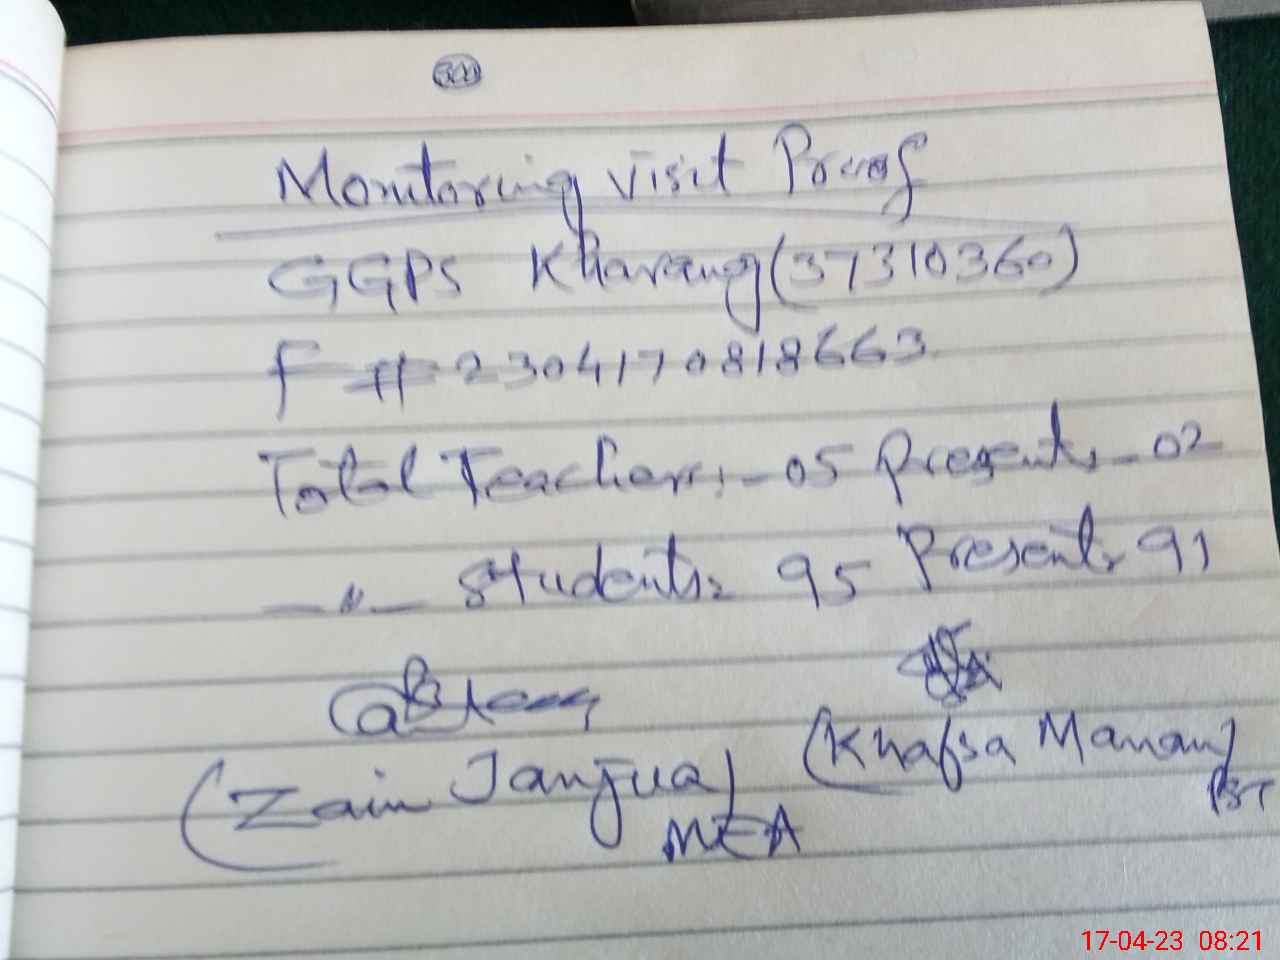 Monitoring Visit Proof
GGPS Kharang (37310360)
F # 2304170818663
Total Teachers:- 05 Present:- 02
—〃— Students: 95 Present: 91
(Zain Janjua)
MEA
(Khafsa Manan)
PST
17-04-23 08:21